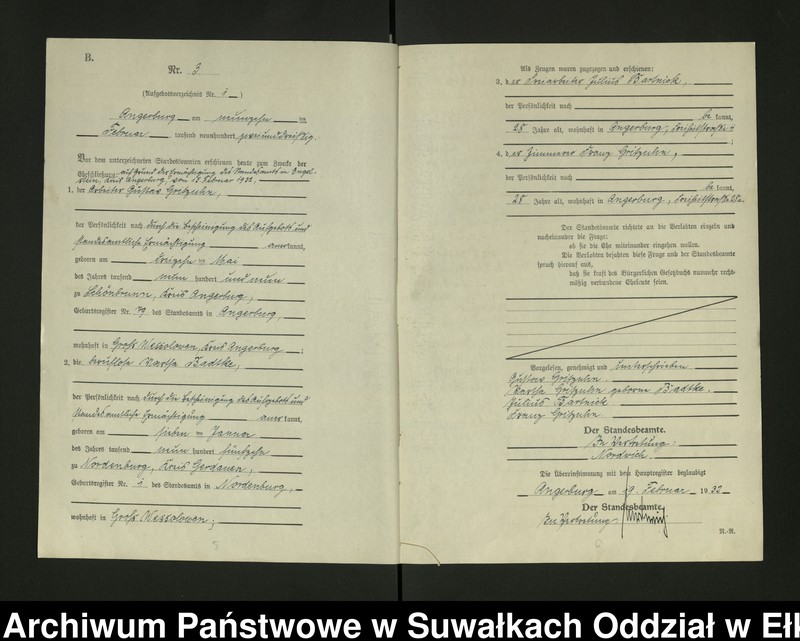 B.
Nr. 3
(Aufgebotsverzeichnis Nr. 1)
Angerburg am neunzehn ten
Februar tausend neunhundert zweiunddreißig.
Vor dem unterzeichneten Standesbeamten erschienen heute zum Zwecke der
Eheschließung: auf Grund der Ermächtigung des Standesamts in Engel-
stein, Kreis Angerburg, vom 15. Februar 1932,
1. der Arbeiter Gustav Gritzuhn,
der Persönlichkeit nach durch die Bescheinigung des Aufgebots und
standesamtliche Ermächtigung anerkannt,
geboren am dreizehn ten Mai
des Jahres tausend neun hundert und neun
zu Schönbrunn, Kreis Angerburg,
Geburtsregister Nr. 19 des Standesamts in Angerburg,
wohnhaft in Groß Wessolowen, Kreis Angerburg;
2. die berufslose Martha Radtke,
der Persönlichkeit nach durch die Bescheinigung des Aufgebots und
standesamtliche Ermächtigung anerkannt,
geboren am sieben ten Januar
des Jahres tausend neun hundert fünfzehn
zu Nordenburg, Kreis Gerdauen,
Geburtsregister Nr. 1 des Standesamts in Nordenburg,
wohnhaft in Groß Wessolowen;
Als Zeugen waren zugezogen und erschienen:
3. der Julius Bartnick,
der Persönlichkeit nach
be kannt,
25 Jahre alt, wohnhaft in Angerburg,
4. der Zimmerer Franz Gritzuhn,
der Persönlichkeit nach
be kannt,
28 Jahre alt, wohnhaft in Angerburg,
Der Standesbeamte richtete an die Verlobten einzeln und
nacheinander die Frage:
ob sie die Ehe miteinander eingehen wollen.
Die Verlobten bejahten diese Frage und der Standesbeamte
sprach hierauf aus,
daß sie kraft des Bürgerlichen Gesetzbuchs nunmehr recht-
mäßig verbundene Eheleute seien.
Vorgelesen, genehmigt und unterschrieben
Gustav Gritzuhn.
Martha Gritzuhn geborene Radtke.
Julius Bartnick
Franz Gritzuhn
Der Standesbeamte.
In Vertretung:
Nordwich.
Die Übereinstimmung mit dem Hauptregister beglaubigt
Angerburg am 19. Februar 1932
Der Standesbeamte
In Vertretung:
N.-R.
Archiwum Państwowe w Suwałkach Oddział w Eł